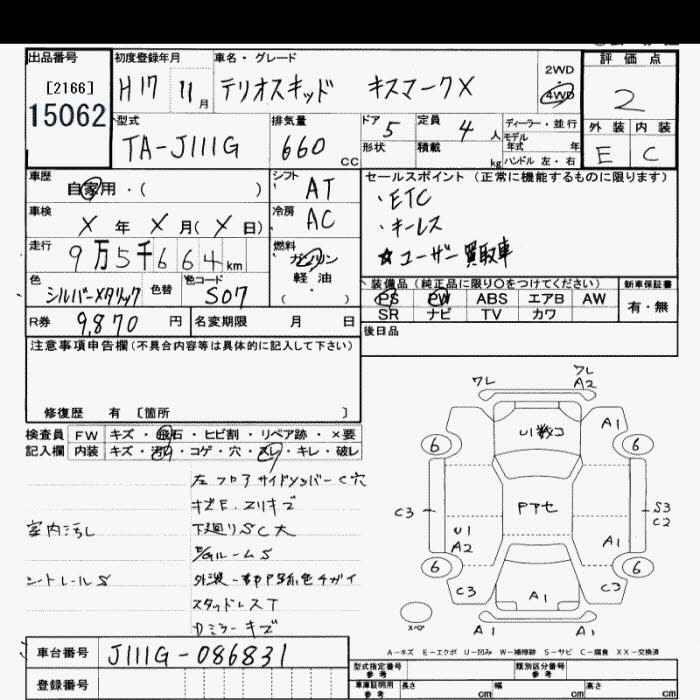 出品番号
[2166]
15062
初度登録年月
H17 11月
車名・グレード
テリオスキッド キスマークX
2WD
4WD
評価点
2
外装 内装
E C
型式
TA-J111G
排気量
660 CC
ドア 5
形状
定員 4 人
積載 kg
ディーラー・並行
モデル
年式 年
ハンドル 左・右
車歴
自家用・( )
シフト
AT
車検
X 年 X 月(X 日)
冷房
AC
走行
9万5千664km
燃料
ガソリン
軽油
( )
色
シルバーメタリック
色替
色コード
S07
R券 9,870 円
名変期限 月 日
セールスポイント(正常に機能するものに限ります)
・ETC
・キーレス
☆ユーザー買取車
装備品(純正品に限り○をつけてください)
PS PW ABS エアB AW
SR ナビ TV カワ
新車保証書
有・無
後日品
注意事項申告欄(不具合内容等は具体的に記入して下さい)
修復歴 有 〔箇所 〕
検査員
記入欄
FW キズ・飛石・ヒビ割・リペア跡・×要
内装 キズ・汚れ・コゲ・穴・スレ・キレ・破レ
左フロアサイドメンバーC穴
キズE、スリキズ
室内汚レ
下廻りSC大
E/GルームS
シートレールS
外装一部
色チガイ
スタッドレスT
ミラーキズ
ワレ
ワレ
A2
U1数コ
A1
6 6
C3
Pアセ
S3
C2
U1
A2
A1
6 6
C3
C3
A1
スペア
A1 A1
A-キズ E-エクボ U-凹み W-補修跡 S-サビ C-腐食 XX-交換済
車台番号
J111G-086831
登録番号
型式指定番号
参考
類別区分番号
参考
車庫証明用
参考
長さ cm
幅 cm
高さ cm